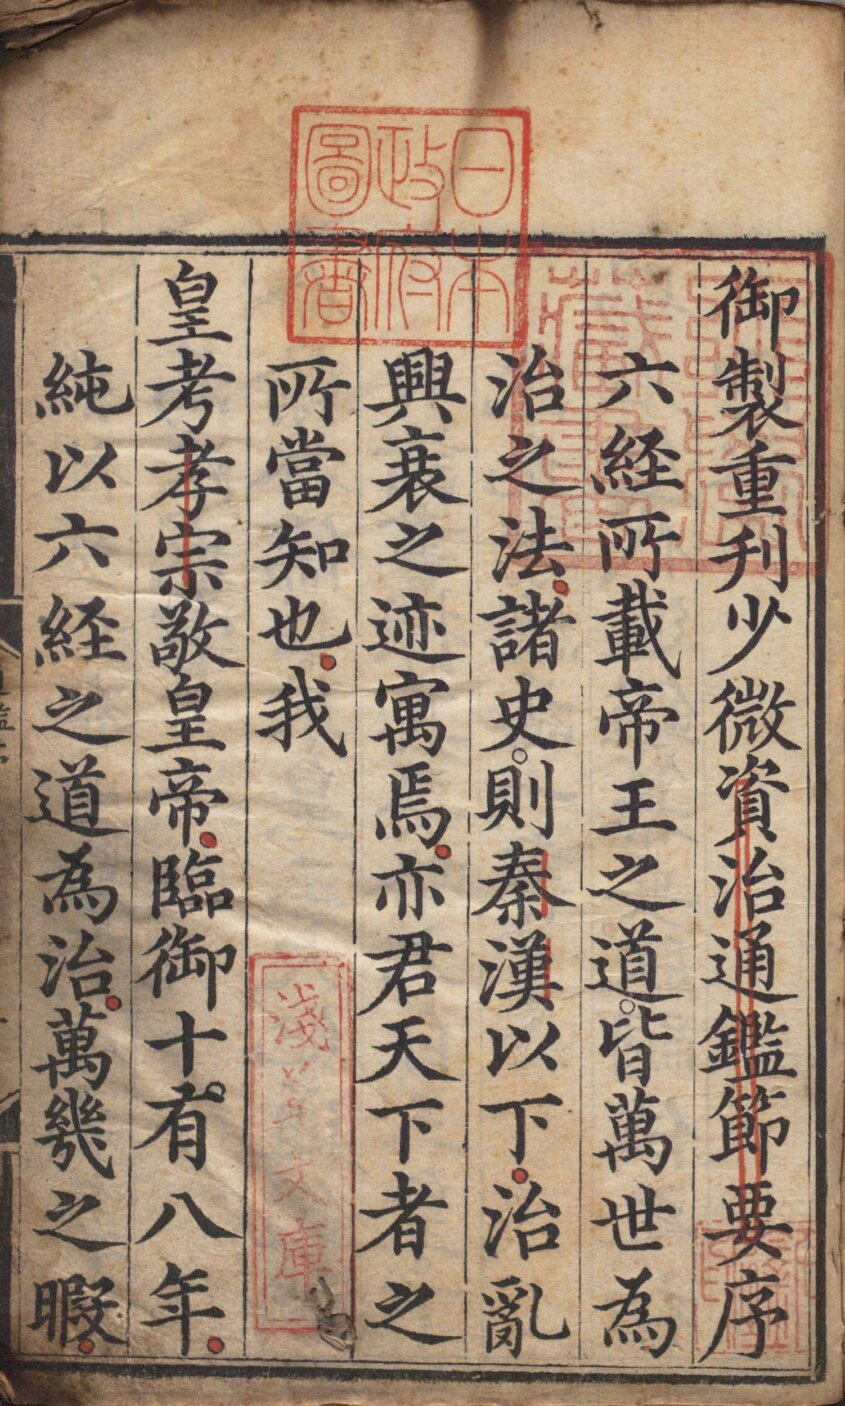 御製重刋少微資治通鑑節要序
六経所載帝王之道皆萬世為
治之法諸史則秦漢以下治亂
興衰之迹寓焉亦君天下者之
所當知也我
皇考孝宗敬皇帝臨御十有八年
純以六経之道為治萬幾之暇
日本
政府
圖書
淺草文庫